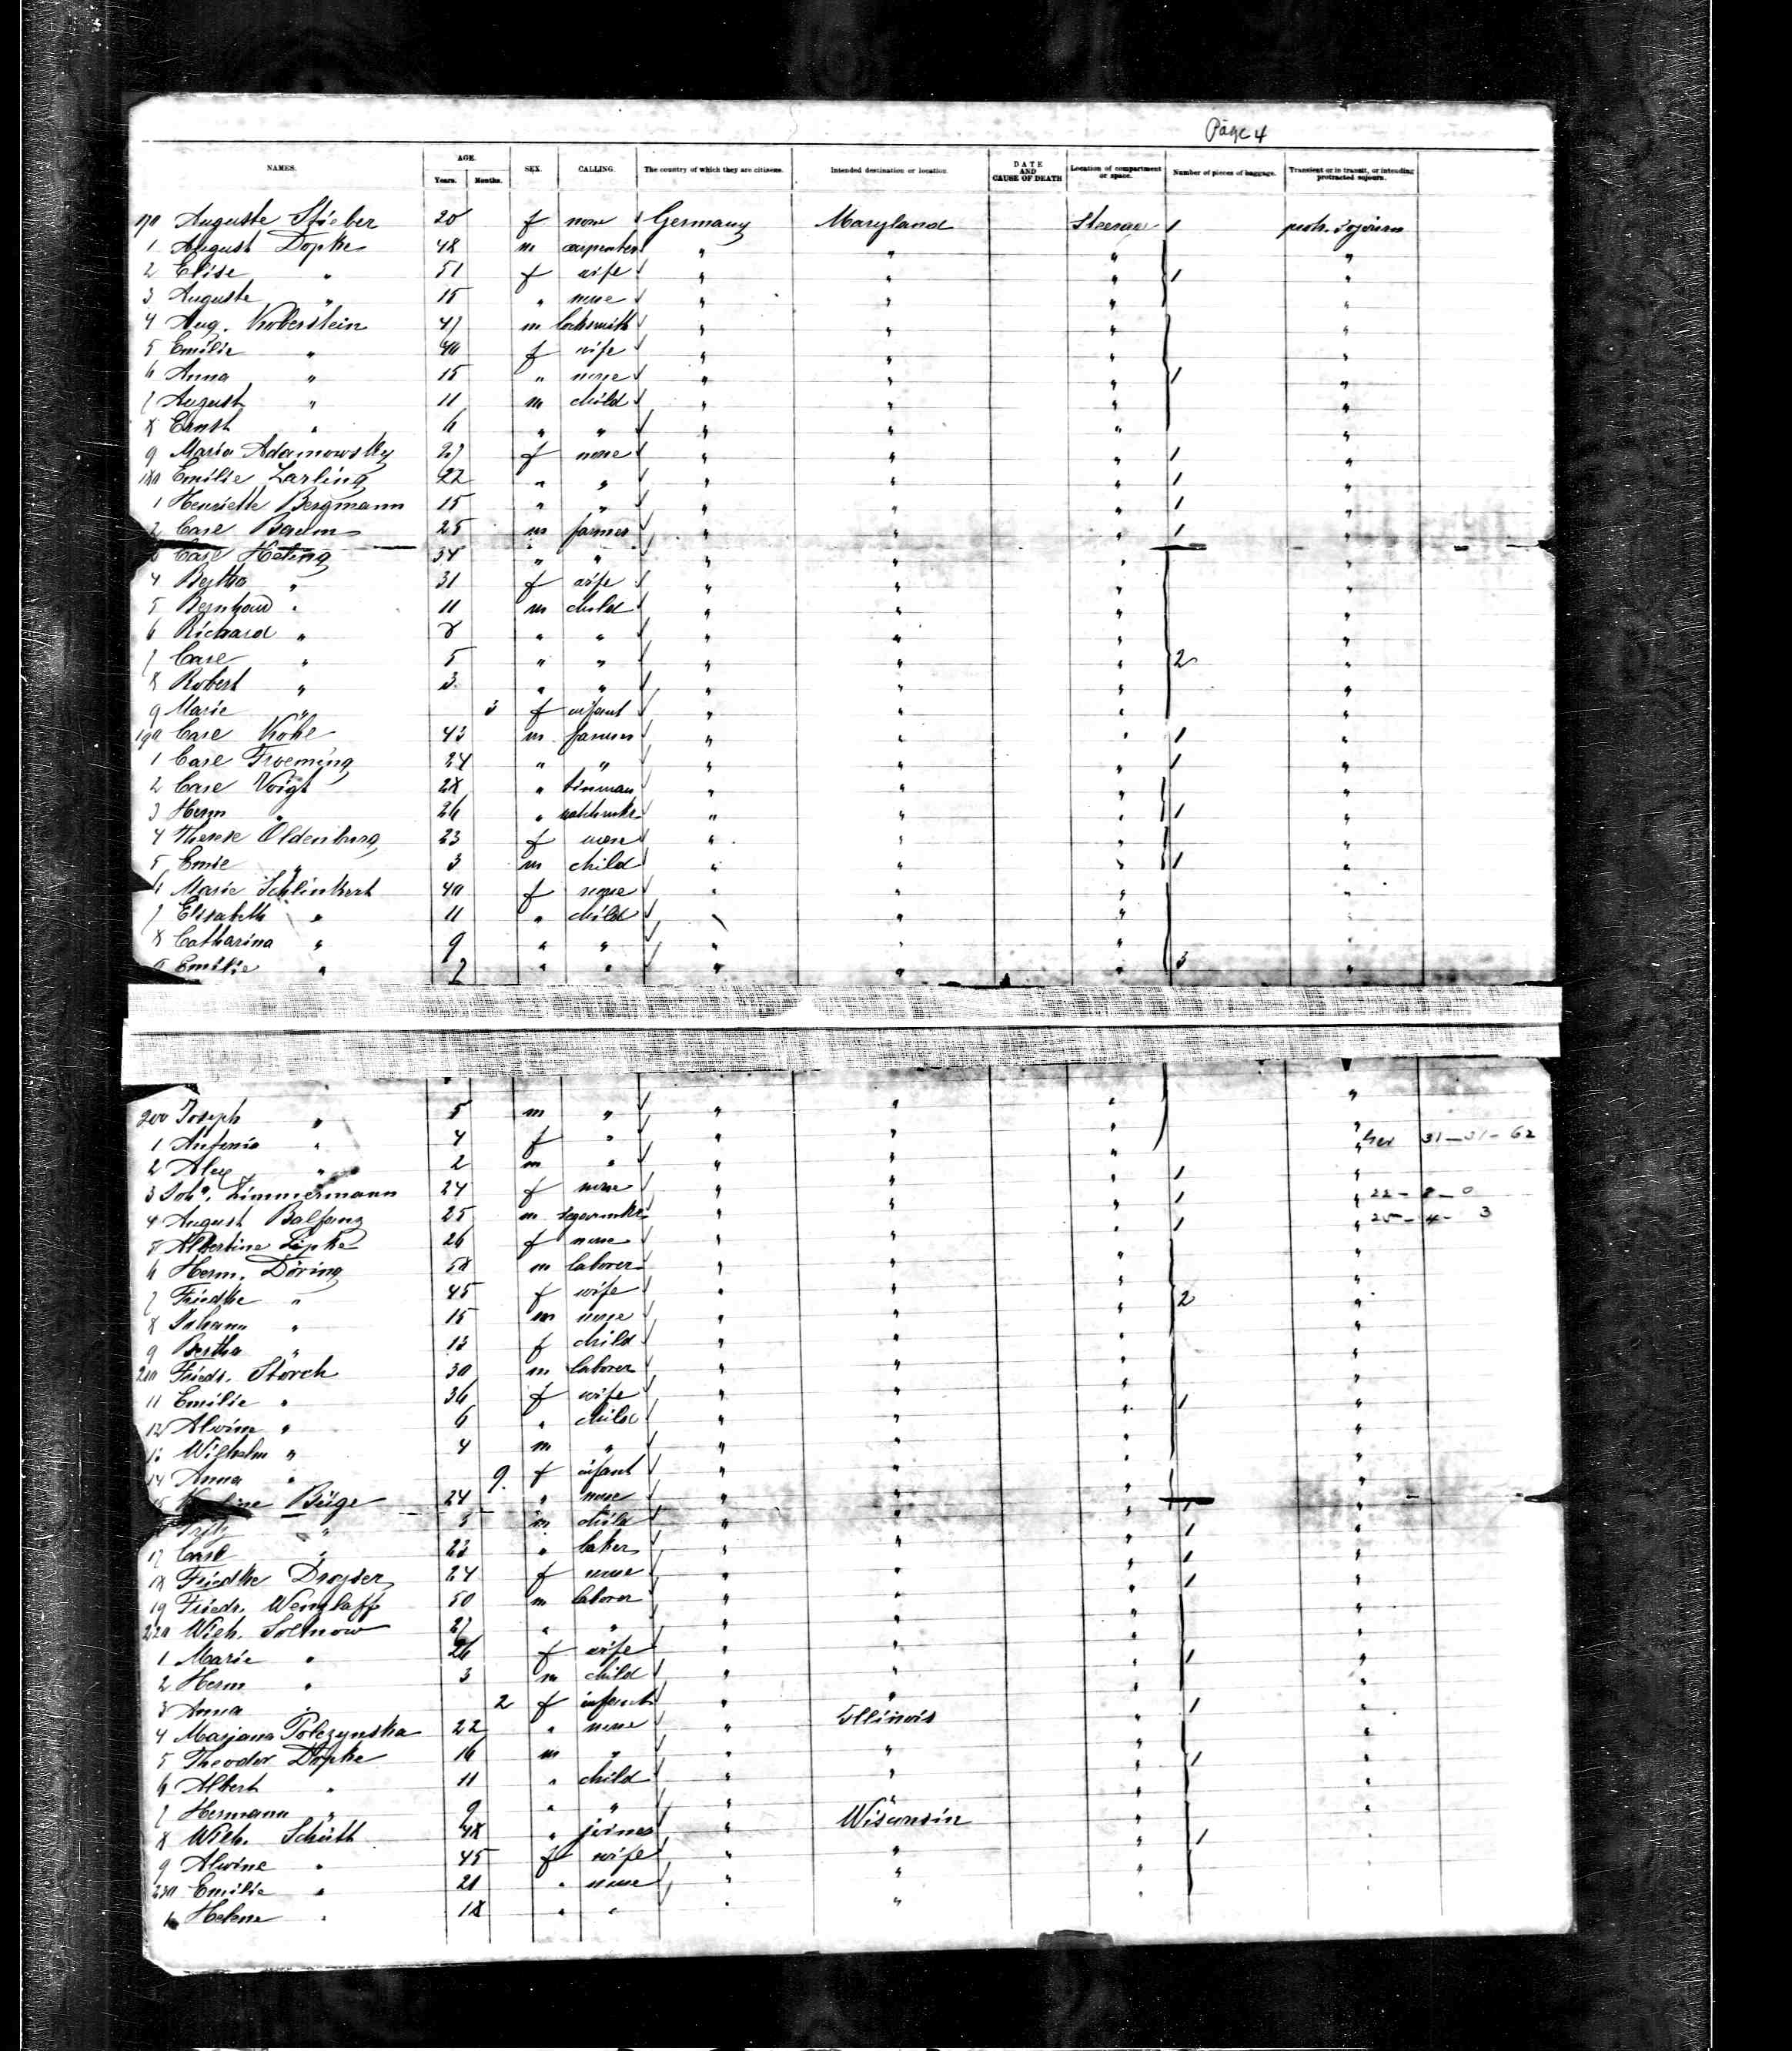 Page 4
NAMES. AGE. Years. Months. SEX. CALLING. The country of which they are citizens. Intended destination or location. DATE AND CAUSE OF DEATH Location of compartment or space. Number of pieces of baggage. Transient or in transit, or intending protracted sojourn.
Auguste Stieber 20 f none Germany Maryland Steerage 1 protr. sojourn
1 August Döpke 48 m carpenter " " " "
2 Elise " 51 f wife " " " 1 "
3 Auguste " 15 " none " " " "
4 Aug. Koberstein m locksmith " " " "
5 Emilie " 40 f wife " " " "
6 Anna " 15 " none " " " 1 "
7 August " 11 m child " " " "
8 Ernst " 6 " " " " " "
9 Maria Adamowsky 27 f none " " " 1 "
180 Emilie Zarling 22 " " " " " 1 "
1 Henriette Bergmann 15 " " " " " 1 "
2 Carl Baum 25 m farmer " " " 1 "
3 Carl Heting 34 " " " " " "
4 Bertha " 31 f wife " " " "
5 Bernhard " 11 m child " " " "
6 Richard " 8 " " " " " "
7 Carl " 5 " " " " " 2 "
8 Robert " 3 " " " " " "
9 Marie " 3 f infant " " " "
190 Carl 43 m farmer " " " 1 "
1 Carl Froeming 24 " " " " " 1 "
2 Carl Voigt 28 " tinman " " " "
3 Herm " 26 " " " " 1 "
4 Therese Oldenburg 23 f none " " " "
5 " 3 m child " " " 1 "
6 Marie Schlinkert 40 f none " " " "
7 Elisabeth " 11 " child " " " "
8 Catharina " 9 " " " " " "
9 Emilie " 2 " " " " " 3 "
200 Joseph " 5 m " " " " "
1 Antonia " 4 f " " " " " 31-31-62
2 Alex " 2 m " " " " "
3 Joh. Zimmermann 24 f none " " " 1 " 22-8-0
4 August Balfanz 25 m " " " 1 " 25-4-3
5 Albertine Lipke 26 f none " " " 1 "
6 Herm. Döring 58 m laborer " " " "
7 Friedke " 45 f wife " " " 2 "
8 Johann " 15 m none " " " "
9 Bertha " 13 f child " " " "
210 Friedr. Storch 30 m laborer " " " "
11 Emilie " 36 f wife " " " 1 "
12 Alwine " 6 " child " " " "
13 Wilhelm " 4 m " " " " "
14 Anna " 9 f infant " " " "
Büge 24 " none " " " "
" 3 m child " " " 1 "
17 Carl " 23 " baker " " " 1 "
18 Friedke Dreyser 24 f none " " " 1 "
19 Friedr. Wenzlaff 50 m laborer " " " "
220 Wilh. Soltnow 27 " " " " " "
1 Marie " 26 f wife " " " 1 "
2 Herm " 3 m child " " " "
3 Anna 2 f infant " " " "
4 Marjana Polczynska 22 " none " Illinois " 1 "
5 Theodor Döpke 16 m " " " " "
6 Albert " 11 " child " " " 1 "
7 Hermann " 9 " " " " " "
8 Wilh. Schütt 48 " joiner " Wisconsin " "
9 Alwine " 45 f wife " " " 1
230 Emilie " 21 " none " " "
1 Helene " 18 " " " " "